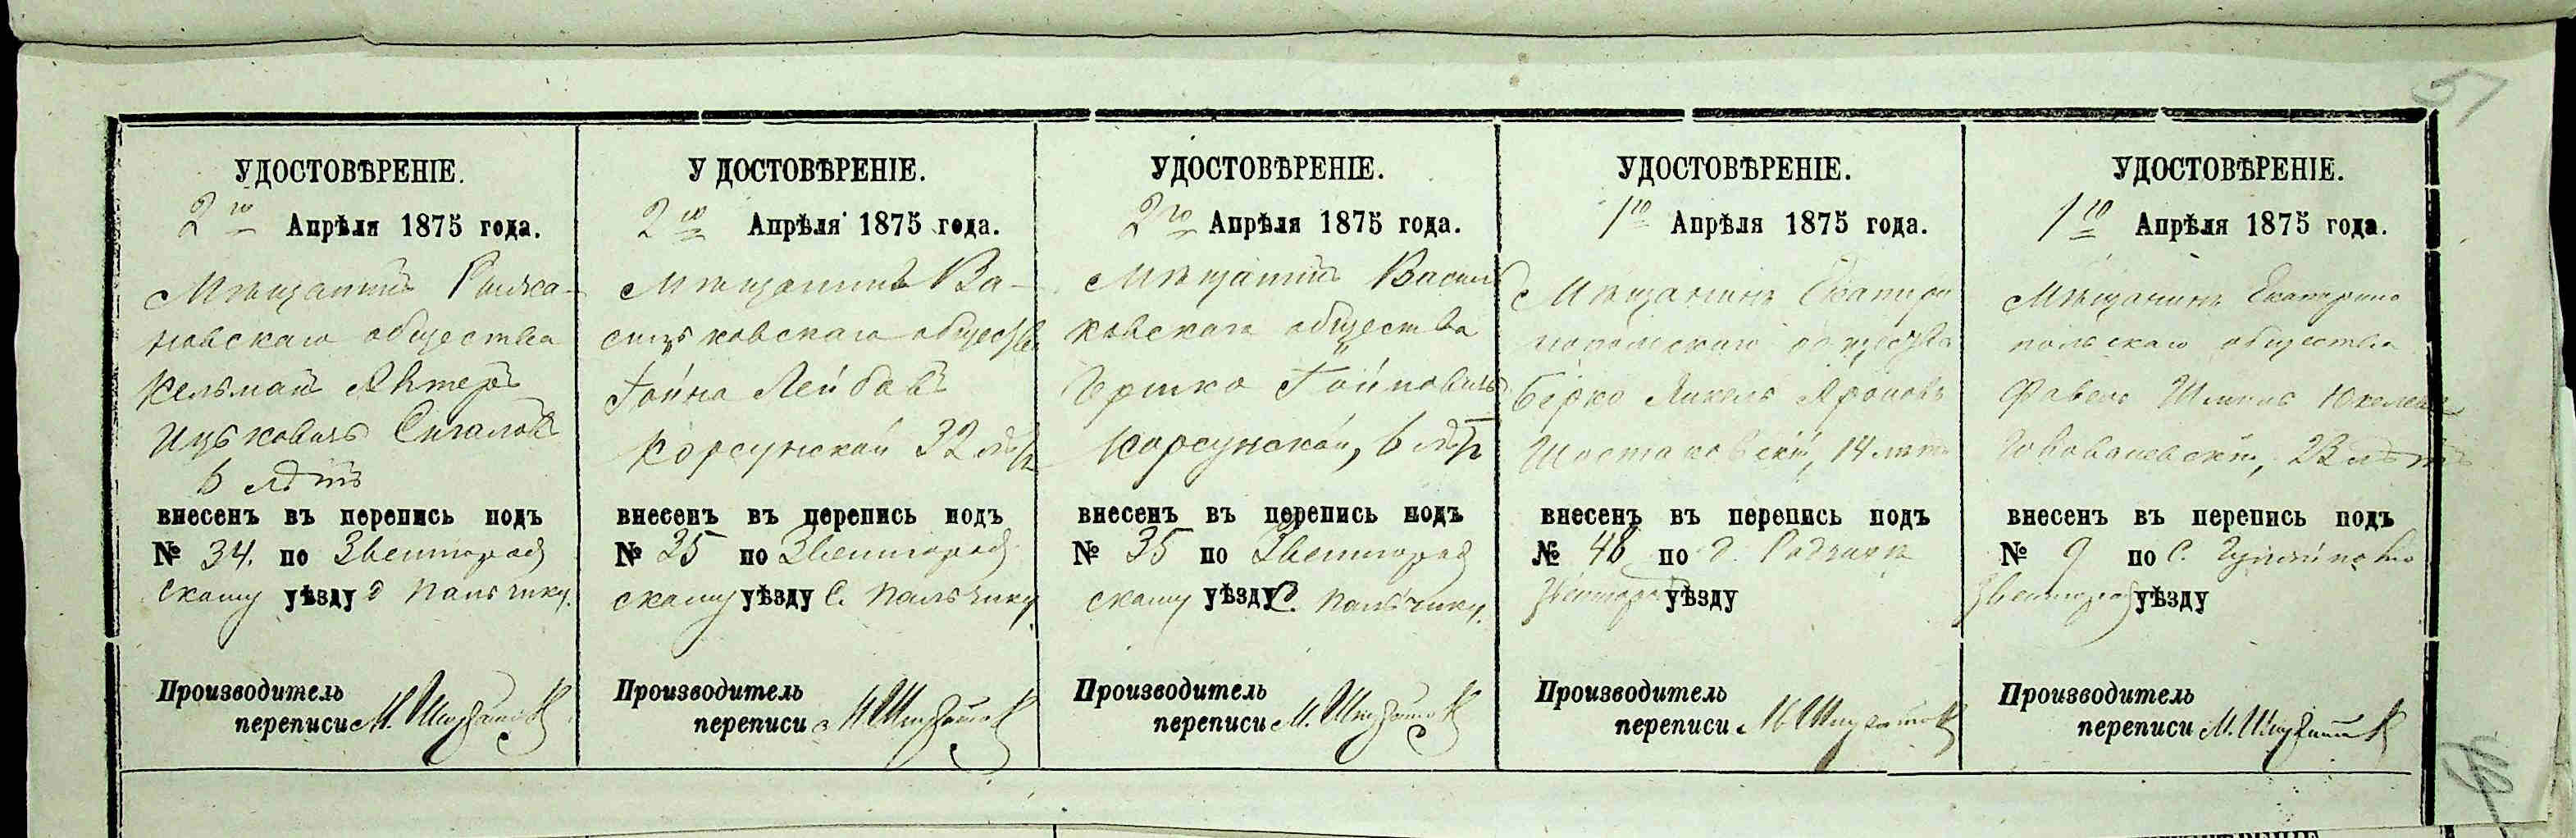 57
УДОСТОВѢРЕНІЕ.
2го Апрѣля 1875 года.
Мѣщанинъ Рыжа-
новскаго общества
Кельманъ
Ицьковичъ Сигалов
6 лѣтъ
внесенъ въ перепись подъ
№ 34. по Звенигород
скому уѣзду д Пальчику.
Производитель
переписи М.
УДОСТОВѢРЕНІЕ.
2го Апрѣля 1875 года.
Мѣщанинъ Ва-
сильковскаго общества
Гойна Лейбовъ
Корсунской 32 лѣтъ
внесенъ въ перепись подъ
№ 35 по Звенигород
скому уѣзду С. Пальчику
Производитель
переписи М
УДОСТОВѢРЕНІЕ.
2го Апрѣля 1875 года.
Мѣщанинъ Василь
ковскаго общества
Гершко Гойновичъ
Корсунской, 6 лѣтъ
внесенъ въ перепись подъ
№ 35 по Звенигород
скому уѣзду С. Пальчику.
Производитель
переписи М.
УДОСТОВѢРЕНІЕ.
1го Апрѣля 1875 года.
Мѣщанинъ Екатерин
опольскаго общества
Берко Янкель Ароновъ
Шостаковскій, 14 лѣтъ
внесенъ въ перепись подъ
№ 48 по д.
Звенигород уѣзду
Производитель
переписи М
УДОСТОВѢРЕНІЕ.
1го Апрѣля 1875 года.
Мѣщанинъ Екатерино
польскаго общества
Файвель
23 лѣтъ
внесенъ въ перепись подъ
№ 9 по С.
Звенигород уѣзду
Производитель
переписи М.